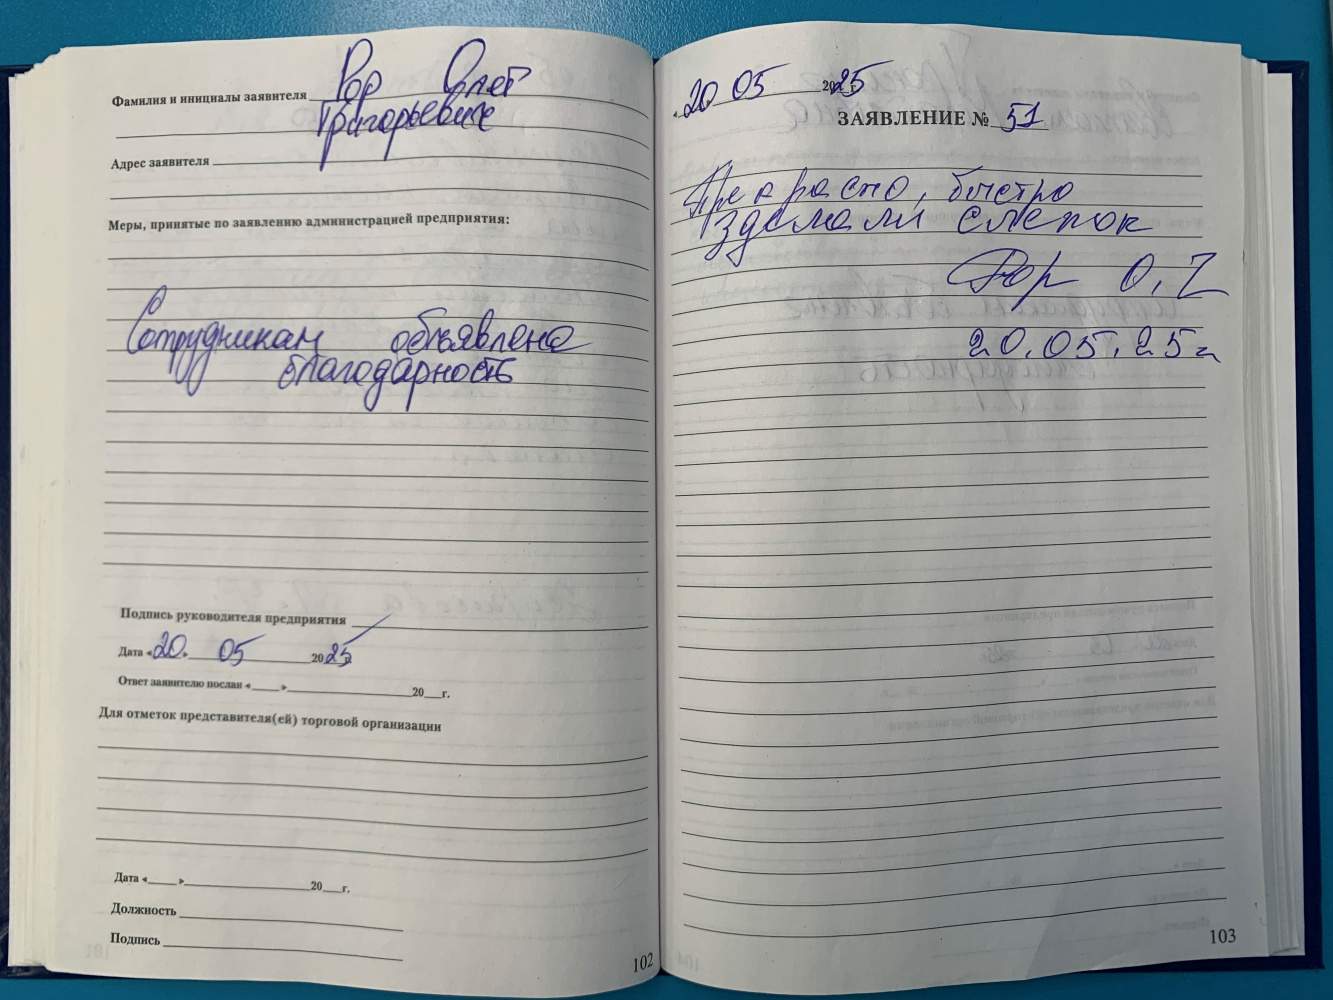 Фамилия и инициалы заявителя Рог Олег
Григорьевич
Адрес заявителя
Меры, принятые по заявлению администрацией предприятия:
Сотрудникам объявлена
благодарность
Подпись руководителя предприятия
Дата «20» 05 2025
Ответ заявителю послан «___» 20__г.
Для отметок представителя(ей) торговой организации
Дата «___» 20__г.
Должность
Подпись
102
«20 05 2025
ЗАЯВЛЕНИЕ № 51
Прекрасно, быстро
зделали слепок
Рог О.Г
20.05.25г
103